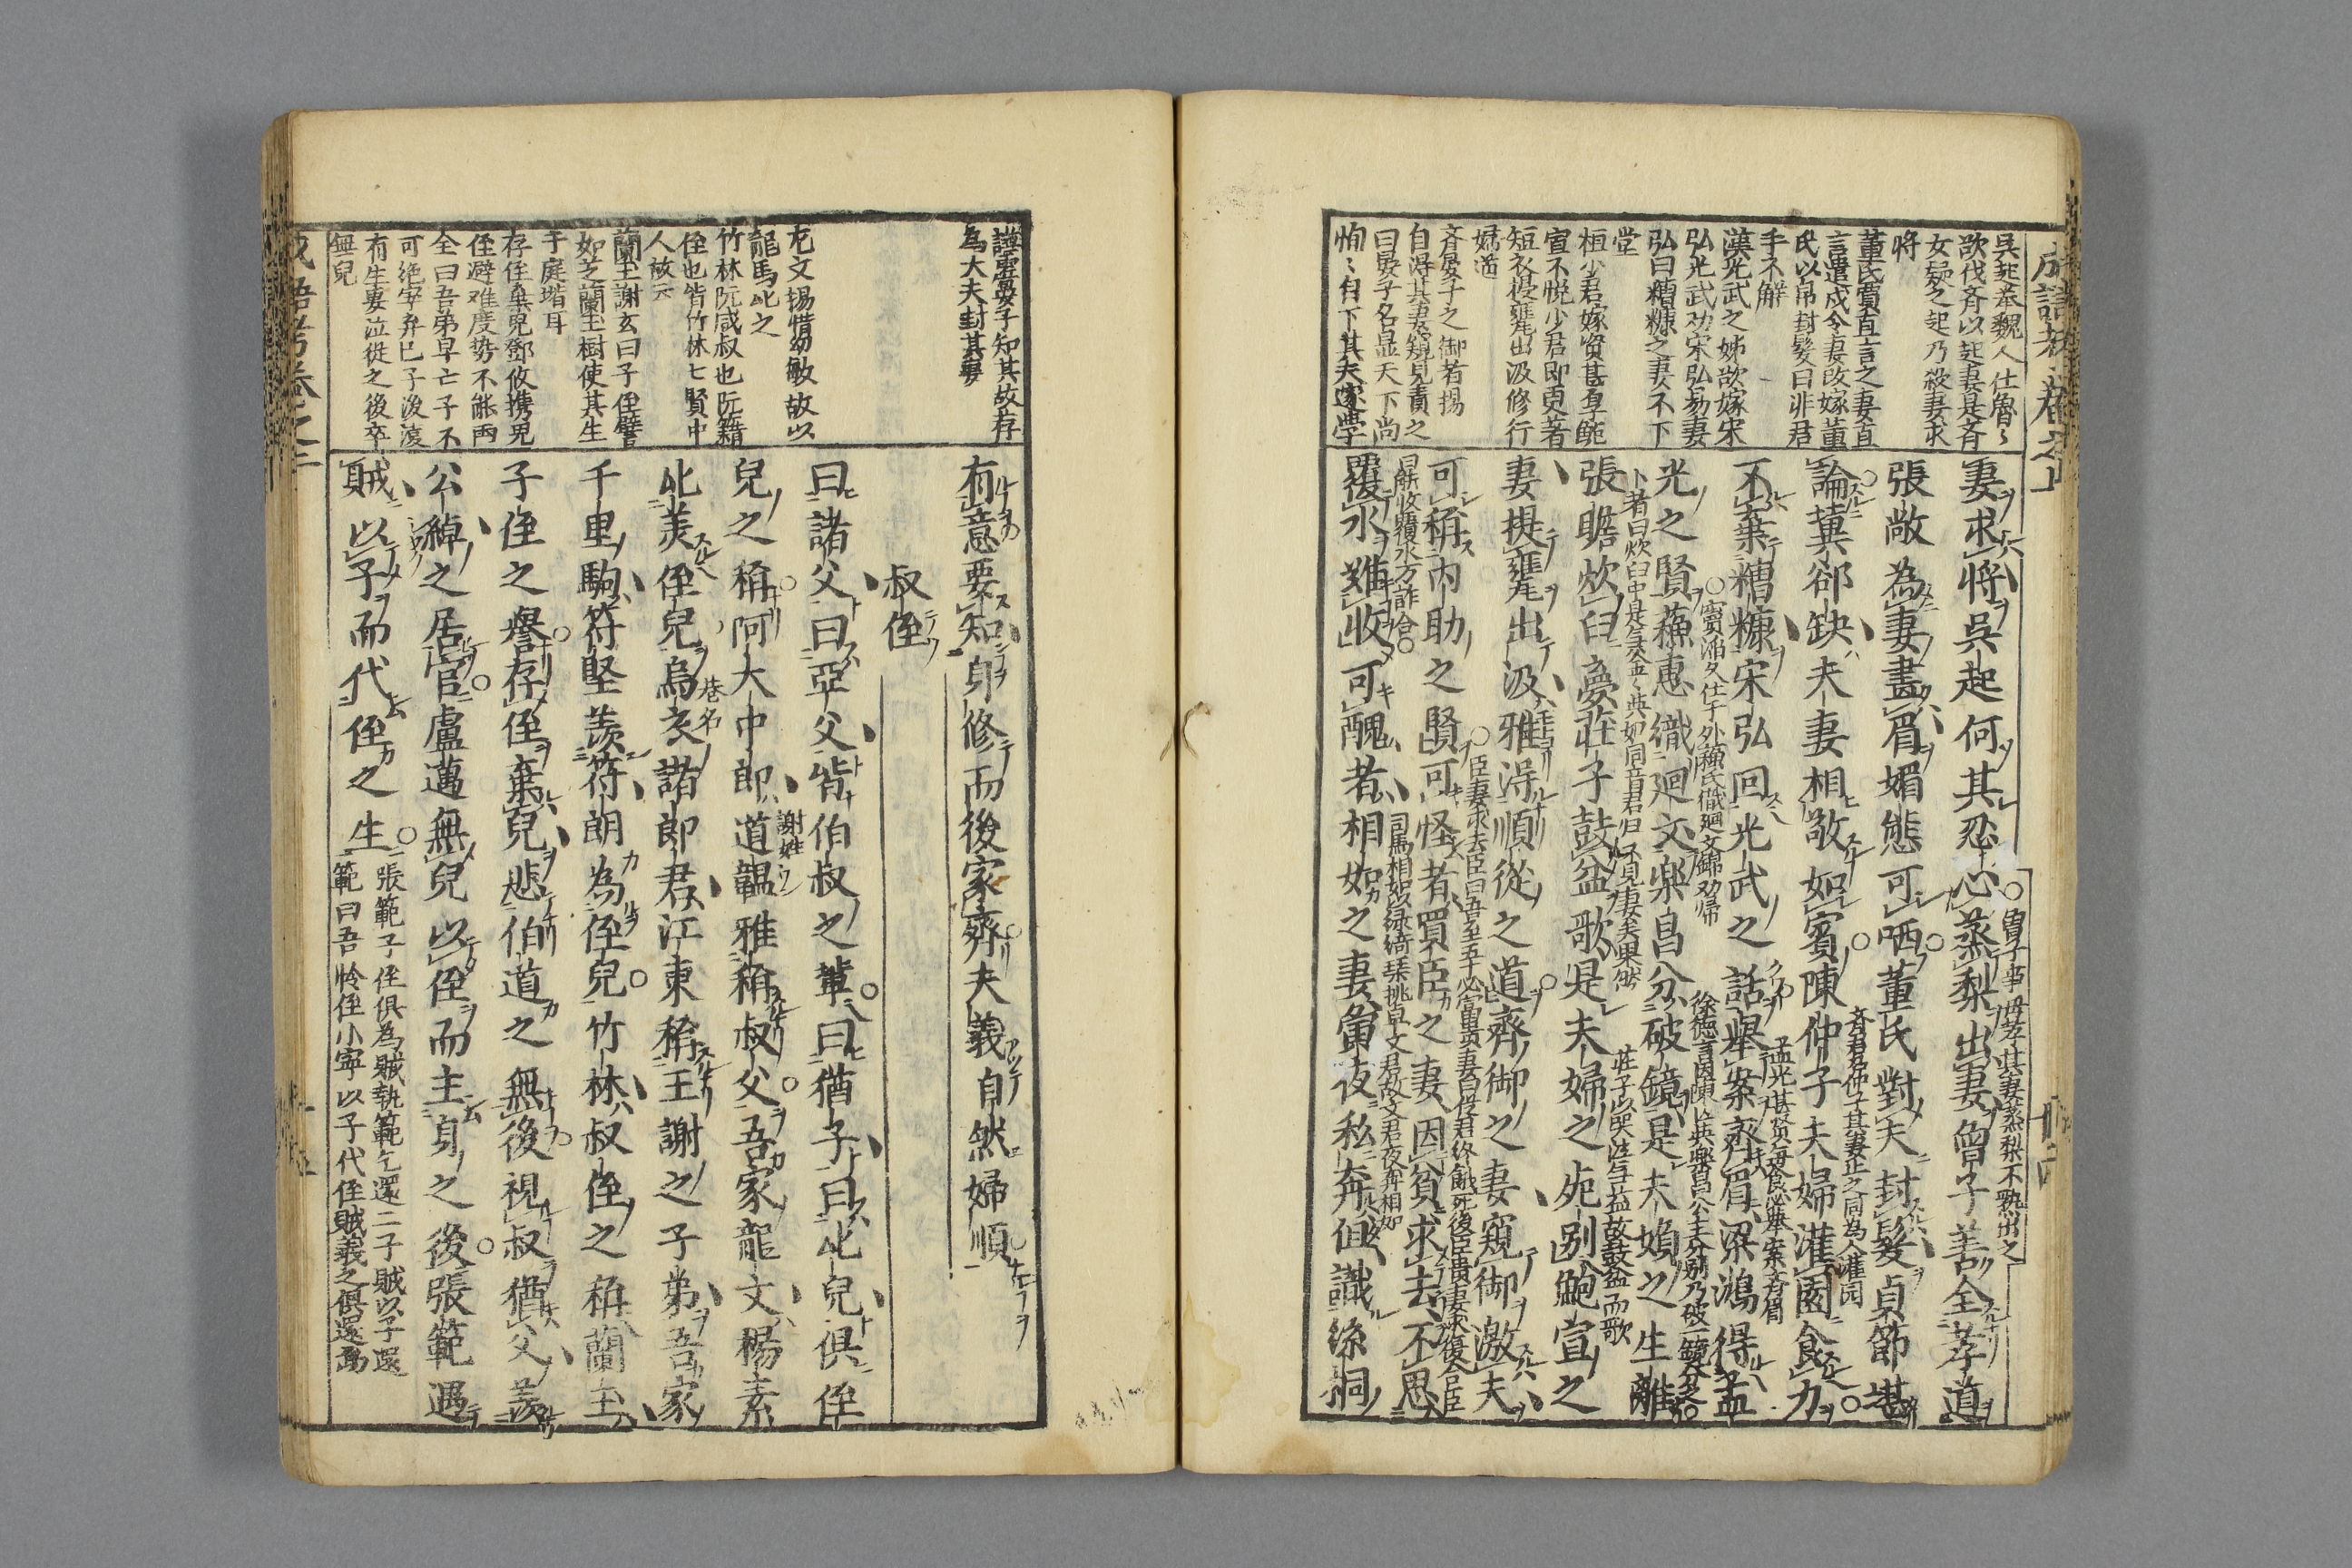 成語考卷之上
吳起茶魏人仕魯〻
欲伐齊以起妻是齊
女疑之起乃殺妻求
將
董氏賈直言之妻直
言遣戍令妻改嫁董
氏以帛封髮曰非君
手不解
漢光武之姊欲嫁宋
弘光武劝宋弘易妻
弘曰糟糠之妻不下
堂
桓少君嫁資甚厚鮑
宣不悦少君即更著
短衣提甕出汲修行
婦道
齊晏子之御者揚
自得其妻窺見責之
曰晏子名显天下尚
恂〻自下其夫遂學
妻求將吳起何其忍心蒸梨出妻曾子善全孝道
曾子事母孝其妻蒸梨不熟出之
張敞為妻畫眉媚態可哂董氏對夫封髮貞節堪
論冀郤缺夫妻相敬如賓陳仲子夫婦灌園食力
齊君君仲子其妻止之同為人灌园
不棄糟糠宋弘回光武之話舉案齊眉梁鴻得孟
孟光甚賢每食必舉案齊眉
光之賢蘓惠織廻文樂昌分破鏡是夫婦之生離
竇滔久仕于外蘓氏織廻文錦劝帰
徐德言因陳亡與樂昌公主分别乃破一鏡各分之
張瞻炊臼夢莊子鼓盆歌是夫婦之死别鮑宣之
卜者曰炊臼中是無釜〻與如同音君归不見妻矣果然
莊子以哭泣無益故鼓盆而歌
妻提甕出汲雅得順從之道齊御之妻窺御激夫
可稱内助之賢可怪者買臣之妻因貧求去不思
臣妻求去臣曰吾至五十必富貴妻曰從君終餓死後臣貴妻求復合臣
曰能收覆水方許合
覆水難收可醜者相如之妻夤夜私奔但識絲桐
司馬相如以绿綺琴挑卓文君故文君夜奔相如
謹處晏子知其故存
為大夫封其妻
龙文揚愔幼敏故以
龍馬比之
竹林阮咸叔也阮籍
侄也皆竹林七賢中
人故云
蘭玉謝玄曰子侄譬
如芝蘭玉樹使其生
于庭堦耳
存侄棄兒鄧攸携兒
侄避难度势不能两
全曰吾弟早亡子不
可絶寧弃已子後復
有生妻泣從之後卒
無兒
有意要知身修而後家齊夫義自然婦順
叔侄
曰諸父曰亞父皆伯叔之輩曰猶子曰比兒俱侄
兒之稱阿大中郎道韞雅稱叔父吾家龍文楊素
謝姓
比羙侄兒烏衣諸郎君江東稱王謝之子弟吾家
巷名
千里駒符堅羨符朗為侄兒竹林叔侄之稱蘭玉
子侄之譽存侄棄兒悲伯道之無後視叔猶父羨
公綽之居官盧邁無兒以侄而主身之後張範遇
賊以子而代侄之生
張範子侄俱為賊執範乞還二子賊以子還
範曰吾怜侄小寧以子代侄賊義之俱還焉
成語考卷之上